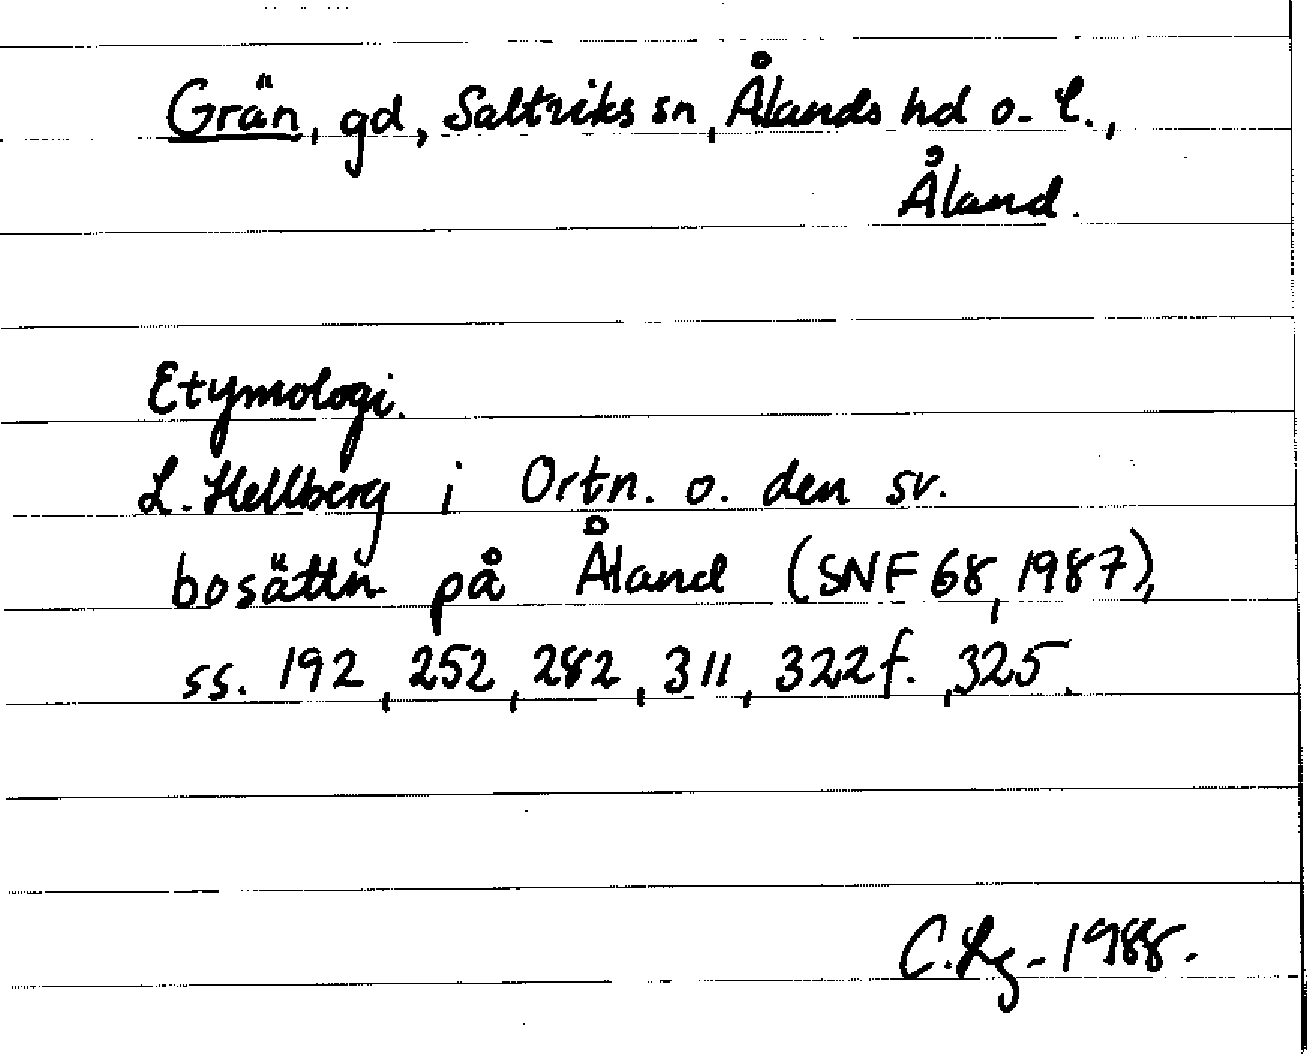 Grän, gd, Saltviks sn, Ålands hd o. l.,
Åland.
Etymologi.
L. Hellberg i Ortn. o. den sv.
bosättn. på Åland (SNF 68, 1987),
ss. 192, 252, 282, 311, 322f., 325.
C. Lg. 1988.